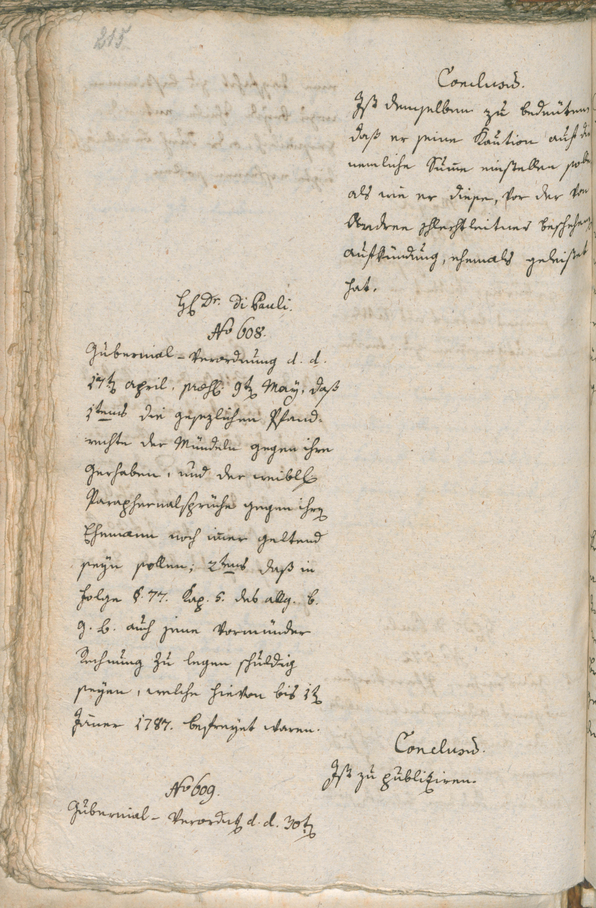 215.
Conclusũ.
Ist demselben zu bedeüten
daß er seine Kaution auf die
nemliche Sum̅e einstellen solle
als wie er diese, vor der von
Andree Schlechtleitner beschehenen
aufkündung, ehemals geleistet
hat.
H. Dr. Di Pauli.
No 608.
Gubernial-Verordnung d. d.
17ten april. praes. 9ten May, daß
1tens die gesezlichen Pfand-
rechte der Mündeln gegen ihre
Gerhaben, und der weibl.
Paraphernalsprüche gegen ihren
Ehemann noch im̅er geltend
seyn sollen; 2tens daß in
folge §. 77. Kap. 5. des allg. b.
g. b. auch jene Vormünder
Rechnung zu legen schuldig
seyen, welche hievon bis 1ten
Jäner 1787. befreyet waren.
Conclusũ.
Ist zu publiziren.
No 609.
Gubernial-Verordng d. d. 30ten